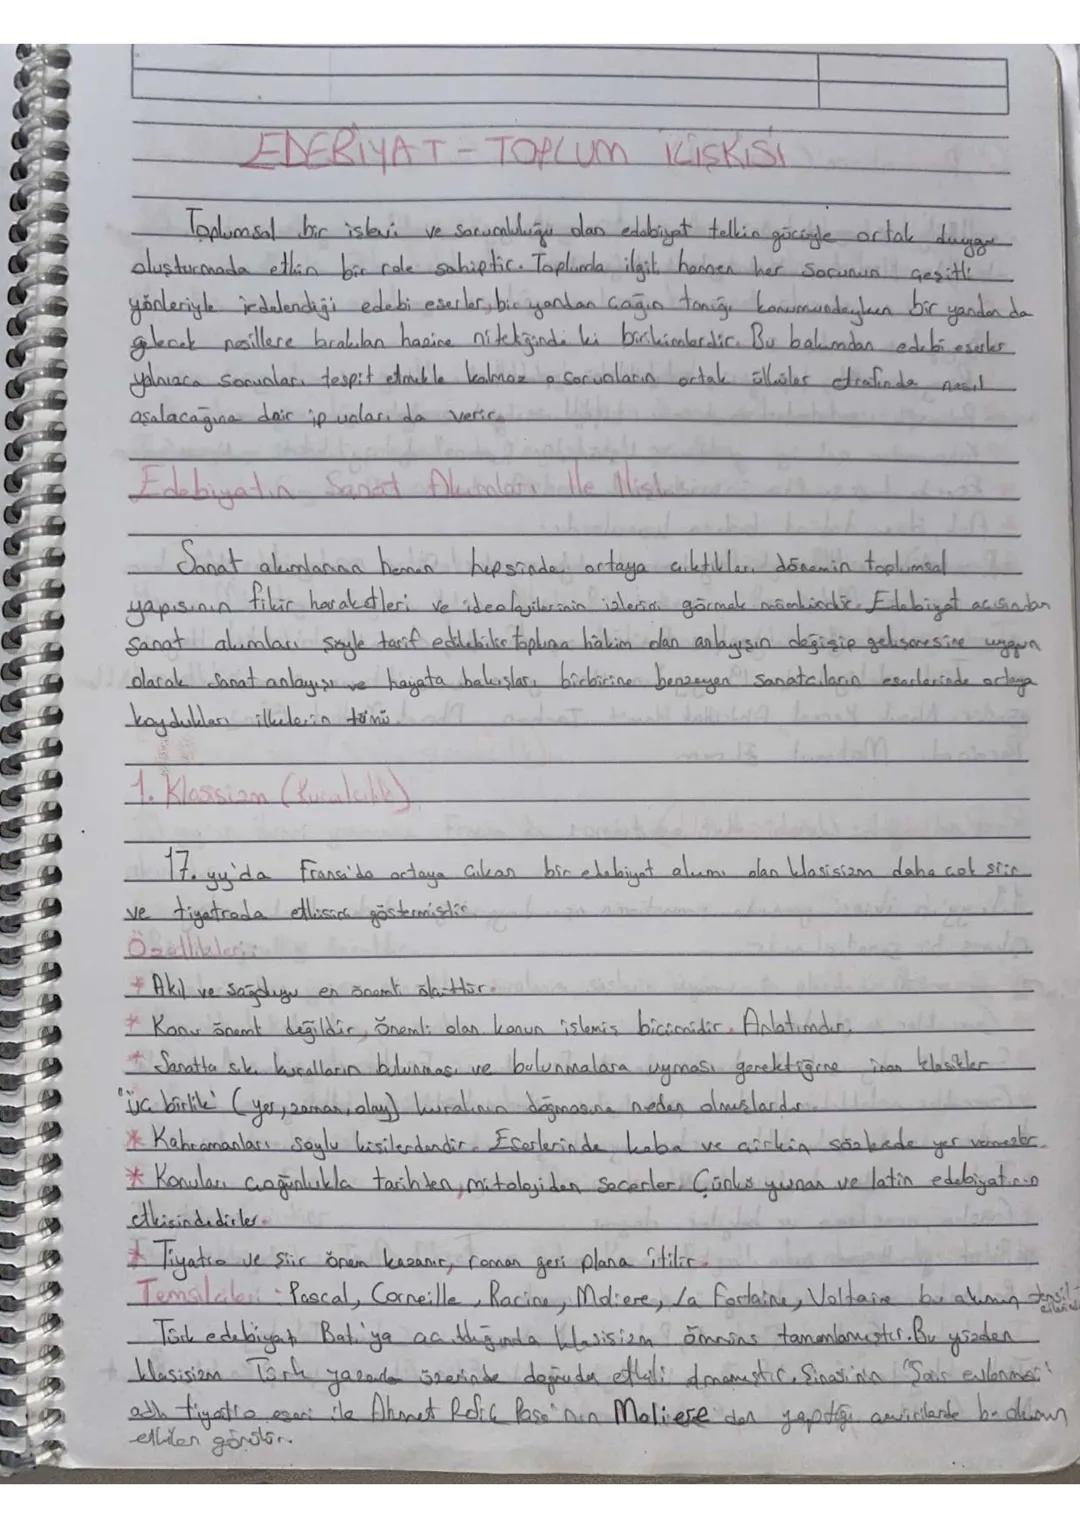 EDEBİYAT - TOPLUM İLİŞKİSİ
Toplumsal bir işlevi ve sorumluluğu olan edebiyat telkin gücüyle ortak duygu
oluşturmada etkin bir role sahiptir. Toplumla ilgili hemen her sorunun çeşitli
yönleriyle irdelendiği edebi eserler, bir yandan çağın tanığı konumundayken bir yandan da
gelecek nesillere bırakılan hazine niteliğinde ki birikimlerdir. Bu bakımdan edebi eserler
yalnızca sorunları tespit etmekle kalmaz o sorunların ortak ülküler etrafında nasıl
aşılacağına dair ip uçları da verir.
Edebiyatın Sanat Akımları İle İlişkisi
Sanat akımlarının hemen hepsinde, ortaya çıktıkları dönemin toplumsal
yapısının fikir hareketleri ve ideolojilerinin izlerini görmek mümkündür. Edebiyat açısından
sanat akımları şöyle tarif edilebilir topluma hâkim olan anlayışın değişip gelişmesine uygun
olarak sanat anlayışı ve hayata bakışları birbirine benzeyen sanatçıların eserlerinde ortaya
koydukları ilkelerin tümü.
1. Klassizm (Kuralcılık)
17. yy'da Fransa'da ortaya çıkan bir edebiyat akımı olan klasisizm daha çok şiir
ve tiyatroda etkisini göstermiştir.
Özellikleri:
* Akıl ve sağduyu en önemli ölçüttür.
* Konu önemli değildir, önemli olan konun işleniş biçimidir. Anlatımdır.
* Sanatta sıkı kuralların bulunması ve bulunmalara uyması gerektiğine inan klasikler
"üç birlik" (yer, zaman, olay) kuralının doğmasına neden olmuşlardır.
* Kahramanları soylu kişilerdendir. Eserlerinde kaba ve çirkin sözlerde yer vermezler.
* Konuları çoğunlukla tarihten, mitolojiden seçerler. Çünkü yunan ve latin edebiyatının
etkisindedirler.
* Tiyatro ve şiir önem kazanır, roman geri plana itilir.
Temsilcileri: Pascal, Corneille, Racine, Moliere, La Fontaine, Voltaire bu akımın temsilcileridir
Türk edebiyatı Batı'ya açıldığında klasisizm ömrünü tamamlamıştır. Bu yüzden
klasisizm Türk yazarlar üzerinde doğrudan etkili olmamıştır. Şinasi'nin "Şair evlenmesi"
adlı tiyatro eseri ile Ahmet Refik Paşa'nın Moliere'den yaptığı çevirilerde bu akımın
etkileri görülür.